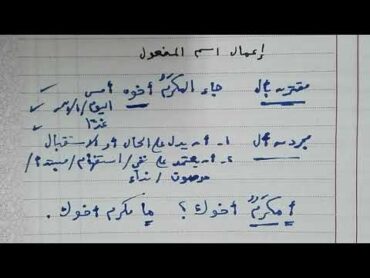 إعمال اسم المفعول
مقترن بأل جاء المكرَمُ أخوه أمس
اليوم / الآن
غدًا
مجرد من أل ١- أن يدل على الحال أو الاستقبال
٢- أن يعتمد على نفي / استفهام / مبتدأ /
موصوف / نداء
أمكرَمٌ أخوك ؟ ما مكرم أخوك .